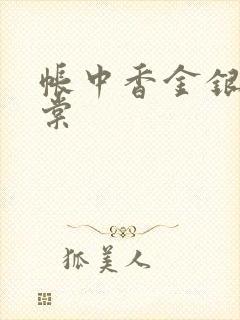 帐中香金银
棠
狐美人